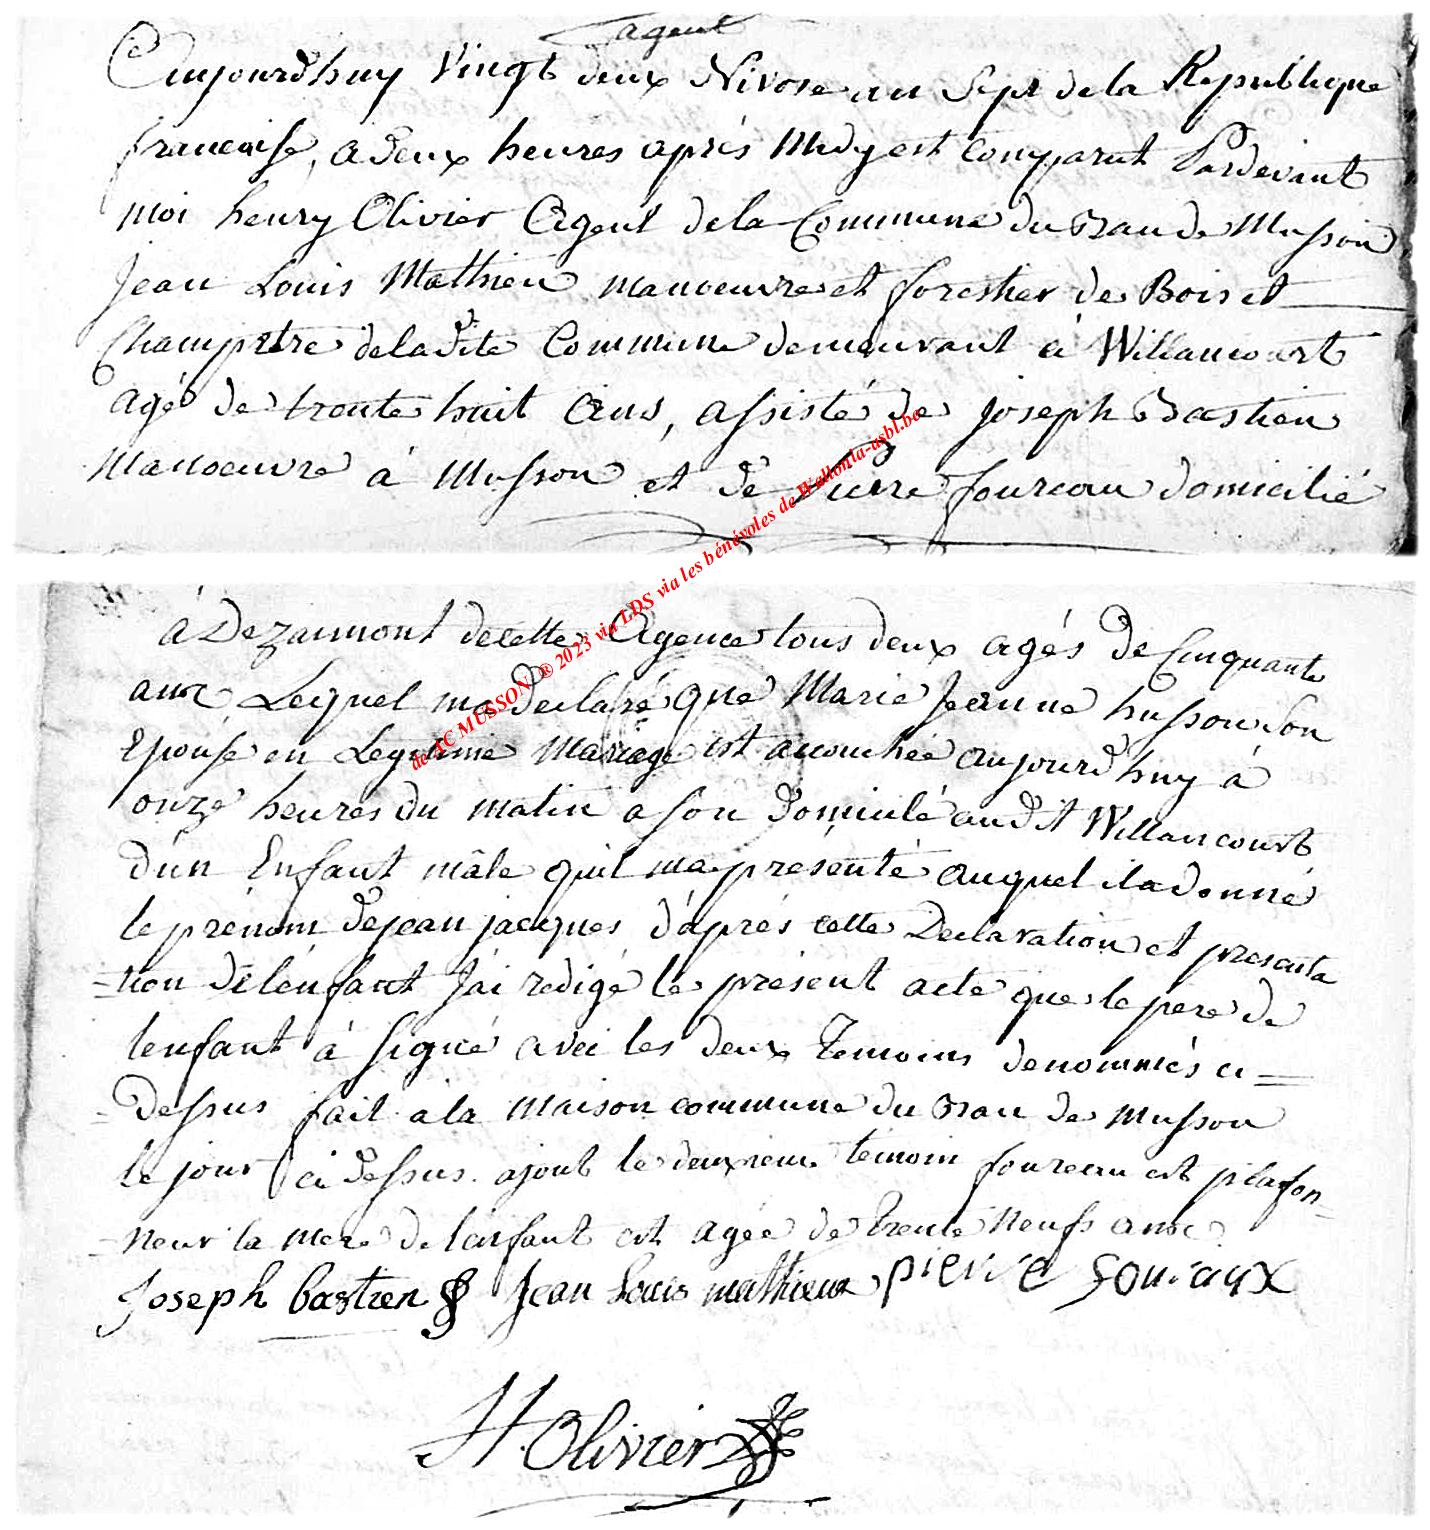 agent
Cejourdhuy Vingt deux Nivose an Sept de la Republique
francaise, a deux heures aprés Midy est Comparut Pardevant
moi henry Olivier Agent de la Commune du Ban de Musson
Jean Louis Mathieu manoeuvre et forestier de Bois et
Champetre de la dite Commune demeurant à Willancourt
agé de trente huit ans, assisté de joseph Bastien
Manoeuvre à Musson et de Pierre foureau domicilié
à Dezaimont de cette Agence tous deux agés de Cinquante
ans Lequel ma declaré que Marie Jeanne husson Son
Epouse en Legitime Mariage est accouchée aujourd huy à
onze heures du matin a son domicile audit Willancourt
d'un Enfant mâle quil ma presenté auquel il a donné
le prénom de jean jacques d'aprés cette Declaration et presenta
=tion de lénfant J'ai redigé le présent acte que le pere de
lenfant à signé avec les deux Temoins denommés ci=
=dessus fait a la maison commune du Ban de Musson
le jour ci dessus. ajout le deuxieme temoin foureau est plafon=
=neur la mere de lenfant est agée de trente neufs ans
Joseph bastien Jean Louis mathieux pierre fouraux
H. Olivier
de AC MUSSON ® 2023 via LDS via les bénévoles de Wallonia-asbl.be